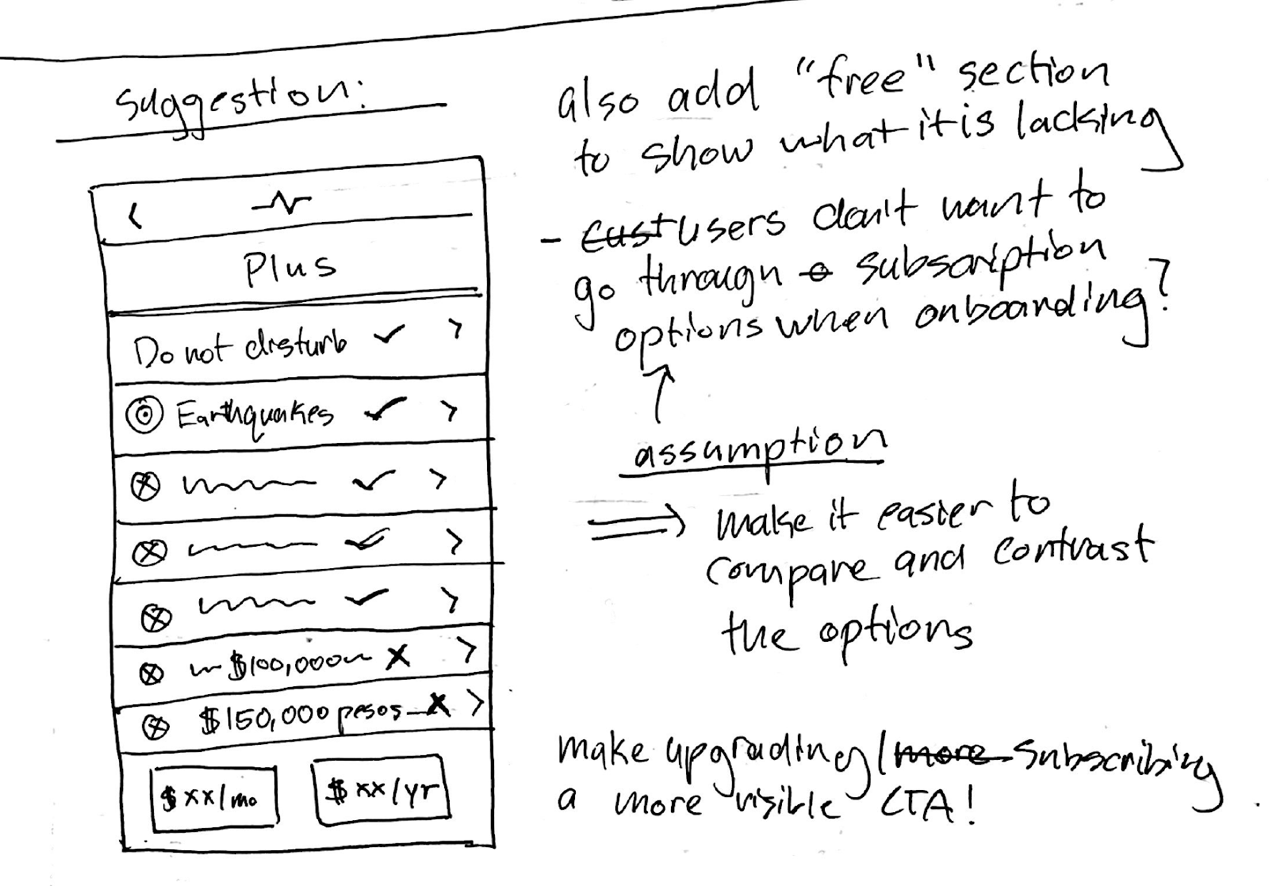 suggestion:
Plus
Do not disturb ✓ >
Earthquakes ✓ >
✓ >
✓ >
✓ >
$100,000 X >
$150,000 pesos X >
$ xx/mo
$ xx/yr
also add "free" section
to show what it is lacking
- cust users don't want to
go through a subscription
options when onboarding?
assumption
⇒ make it easier to
compare and contrast
the options
make upgrading/more subscribing
a more visible CTA!